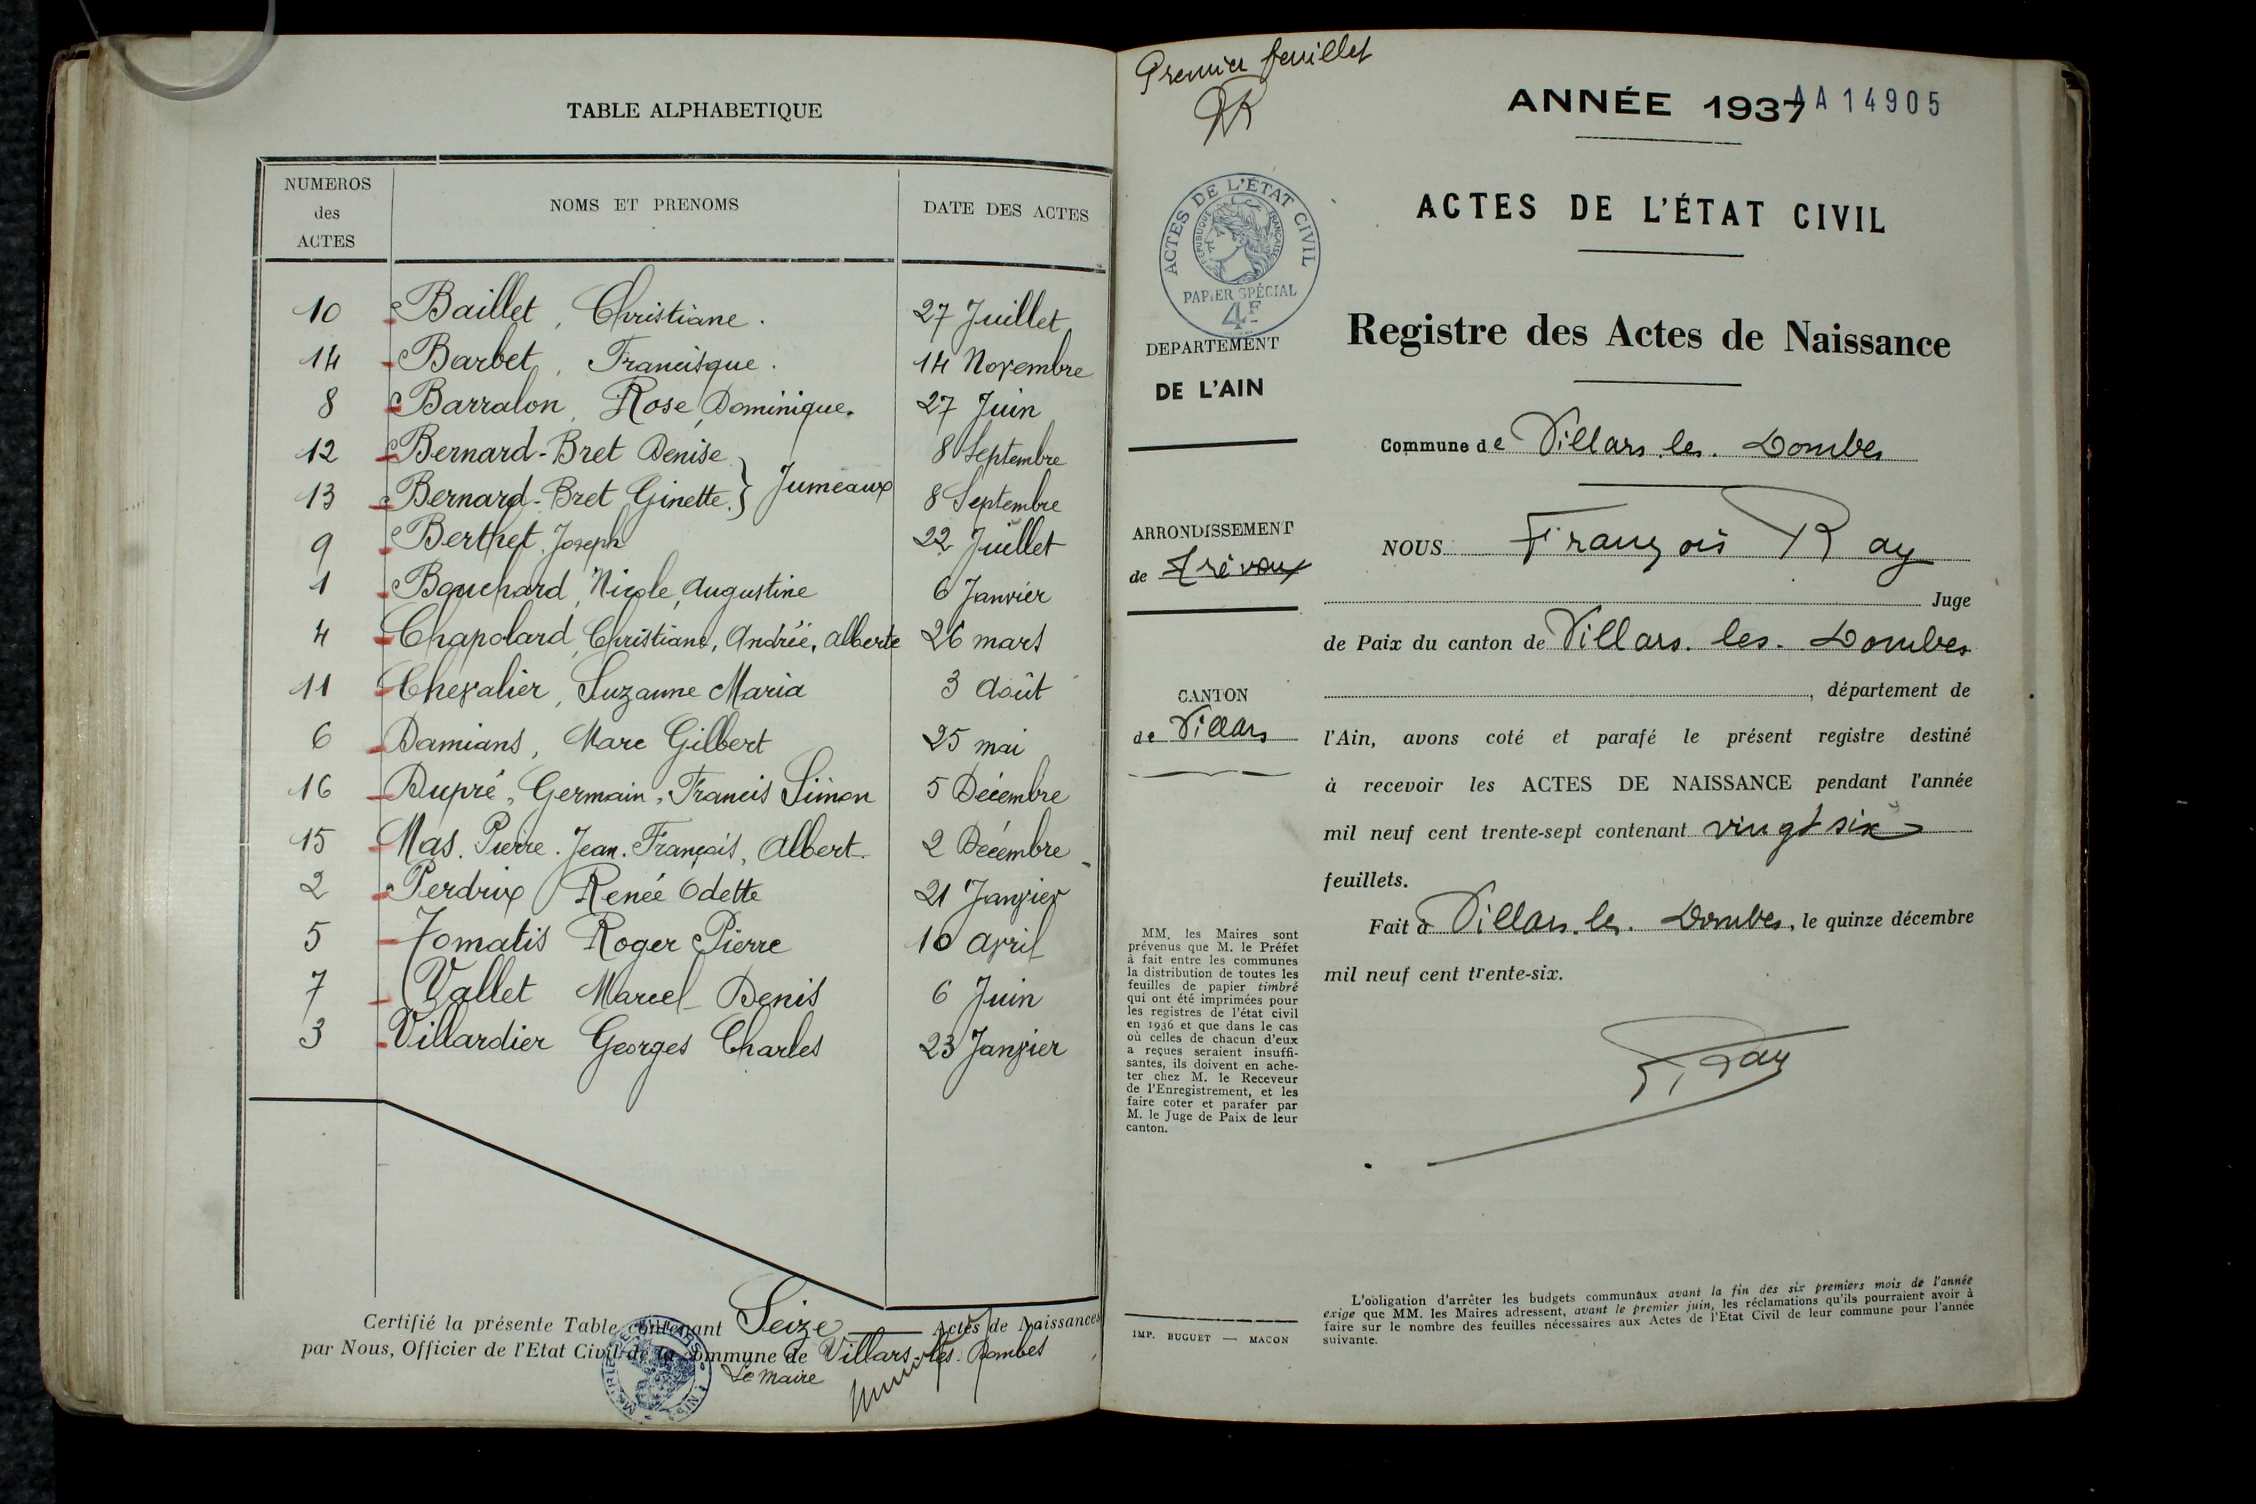 TABLE ALPHABETIQUE
NUMEROS
des
ACTES
NOMS ET PRENOMS
DATE DES ACTES
10 Baillet, Christiane. 27 Juillet
14 Barbet, Francisque. 14 Novembre
8 Barralon, Rose, Dominique. 27 Juin
12 Bernard-Bret Denise 8 Septembre
13 Bernard-Bret Ginette } Jumeaux 8 Septembre
9 Berthet Joseph 22 Juillet
1 Bouchard, Nicole, Augustine 6 Janvier
4 Chapolard, Christiane, Andrée, Alberte 26 mars
11 Chevalier, Suzanne Maria 3 Août
6 Damians, Marc Gilbert 25 mai
16 Dupré, Germain, Francis Simon 5 Décembre
15 Mas. Pierre. Jean. François, Albert. 2 Décembre
2 Perdrix Renée Odette 21 Janvier
5 Tomatis Roger Pierre 10 avril
7 Vallet Marcel Denis 6 Juin
3 Villardier Georges Charles 23 Janvier
Certifié la présente Table contenant Seize Actes de Naissances
par Nous, Officier de l'Etat Civil de la commune de Villars-les-Dombes
Le Maire
Premier feuillet
ANNÉE 1937
AA14905
ACTES DE L'ÉTAT CIVIL
RÉPUBLIQUE FRANÇAISE
PAPIER SPÉCIAL
4F
ACTES DE L'ÉTAT CIVIL
Registre des Actes de Naissance
DEPARTEMENT
DE L'AIN
Commune de Villars les Dombes
ARRONDISSEMENT
de Trévoux
CANTON
de Villars
NOUS François Ray
Juge
de Paix du canton de Villars. les. Dombes
, département de
l'Ain, avons coté et parafé le présent registre destiné
à recevoir les ACTES DE NAISSANCE pendant l'année
mil neuf cent trente-sept contenant vingt six
feuillets.
Fait à Villars. les. Dombes, le quinze décembre
mil neuf cent trente-six.
F. Ray
MM. les Maires sont
prévenus que M. le Préfet
à fait entre les communes
la distribution de toutes les
feuilles de papier timbré
qui ont été imprimées pour
les registres de l'état civil
en 1936 et que dans le cas
où celles de chacun d'eux
a reçues seraient insuffi-
santes, ils doivent en ache-
ter chez M. le Receveur
de l'Enregistrement, et les
faire coter et parafer par
M. le Juge de Paix de leur
canton.
IMP. BUGUET — MACON
L'obligation d'arrêter les budgets communaux avant la fin des six premiers mois de l'année
exige que MM. les Maires adressent, avant le premier juin, les réclamations qu'ils pourraient avoir à
faire sur le nombre des feuilles nécessaires aux Actes de l'Etat Civil de leur commune pour l'année
suivante.